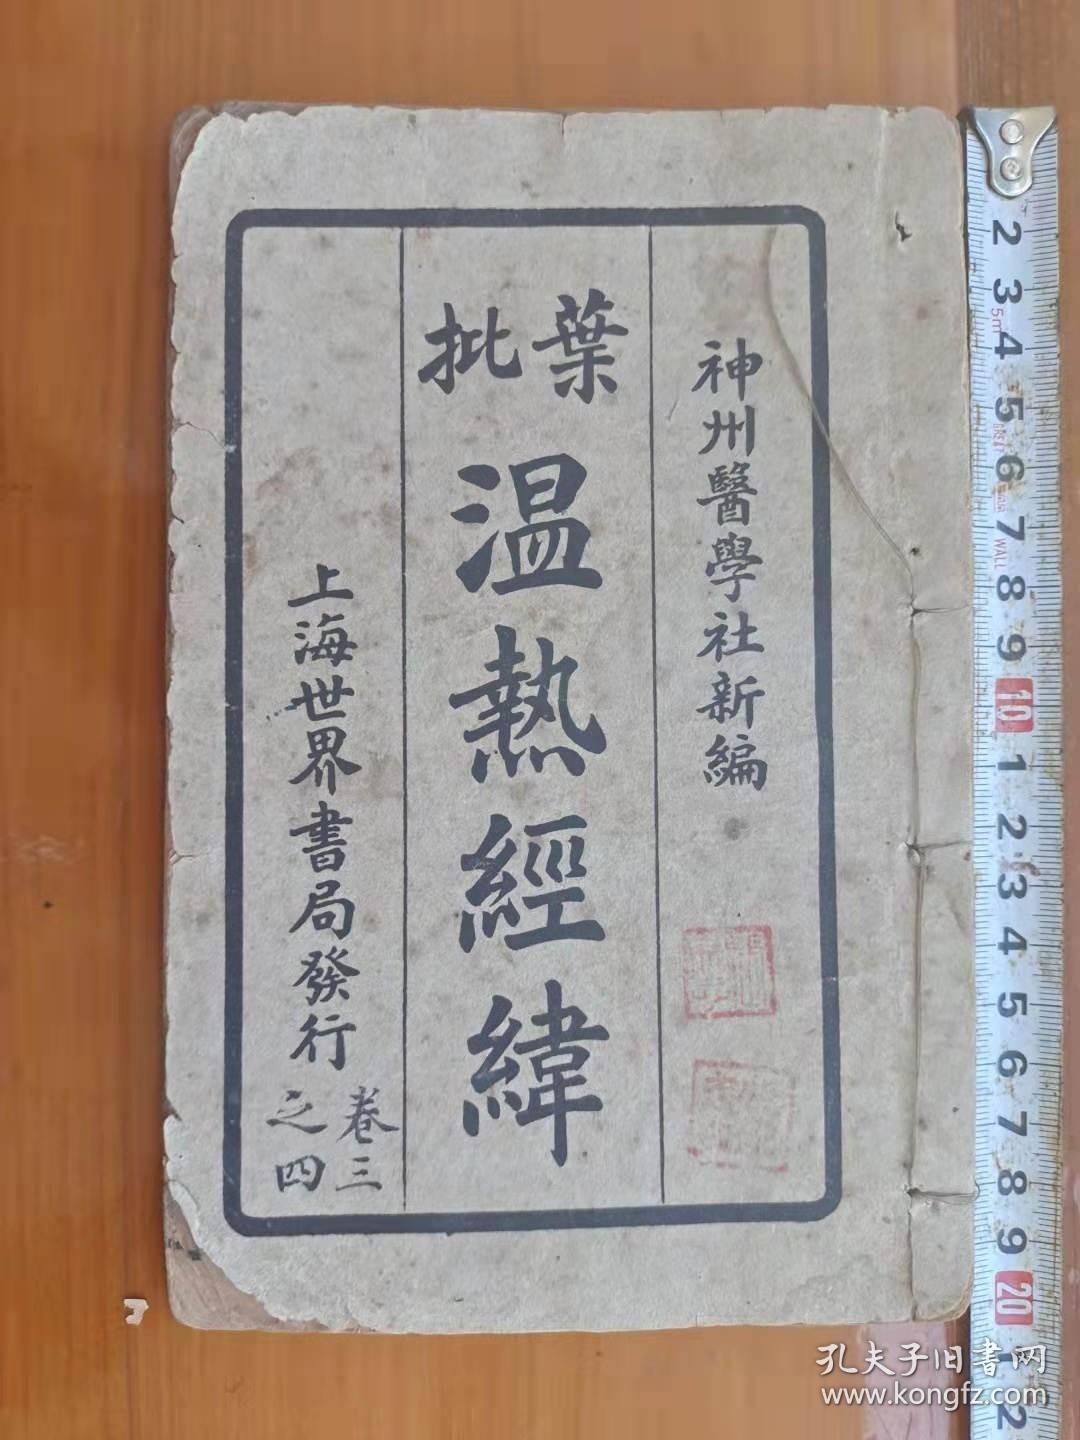 神州醫學社新編
葉批
温熱經緯
上海世界書局發行
卷三
之四
2 3 4 5 6 7 8 9 10 1 2 3 4 5 6 7 8 9 20 1 2
5m
WALL
孔夫子旧書网
www.kongfz.com